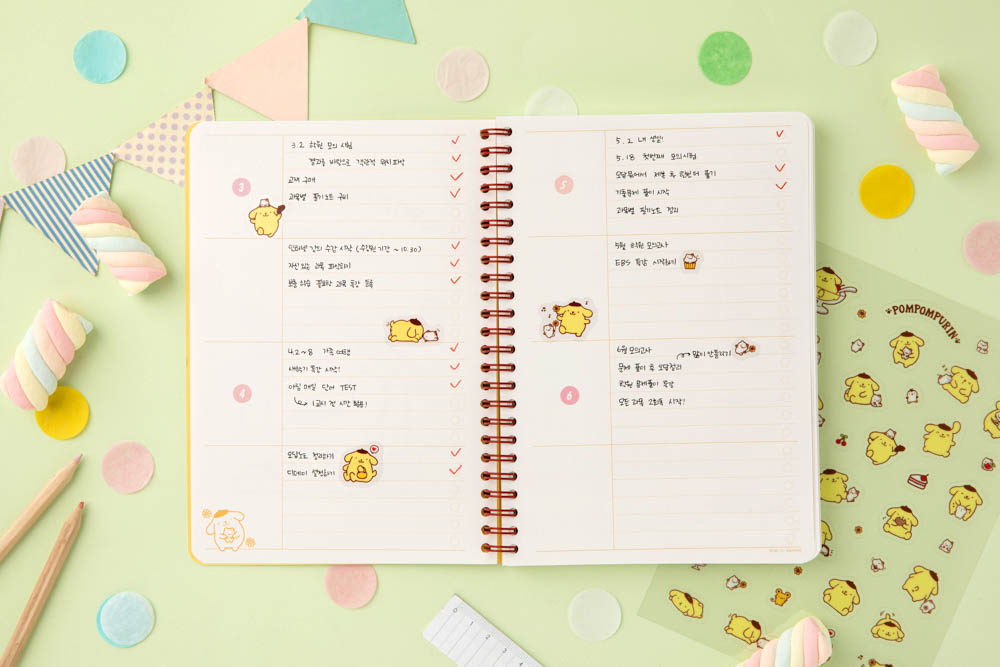 3
3.2 학원 모의 시험
결과를 바탕으로 객관적 위치 파악
교재 구매
과목별 필기노트 구비
인터넷 강의 수강 시작 (수강권 기간 ~ 10.30)
자신 있는 과목 파고들기
보충 수업 필요한 과목 특강 등록
4
4.2~8 가족 여행
새학기 특강 시작!
아침 매일 단어 TEST
1교시 전 시간 활용!
오답노트 정리하기
디데이 설정하기
5
5.2 내 생일!
5.18 첫번째 모의시험
오답풀어서 제출 후 한번 더 풀기
기출문제 풀이 시작
과목별 필기노트 정리
5월 학원 모의고사
EBS 특강 시작하기
6
6월 모의고사
많이 안틀리기
문제 풀이 후 오답정리
학원 문제풀이 특강
모든 과목 2회독 시작!
POMPOMPURIN
0
1
2
3
4